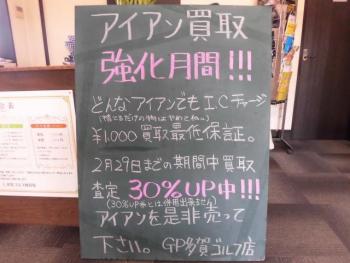 アイアン買取
強化月間!!!
どんなアイアンでもI.Cチャージ
¥1,000 買取最低保証。
2月29日までの期間中買取
査定 30%UP中!!!
(30%UP券とは併用出来ません)
アイアンを是非売って
下さい。GP多賀ゴルフ店